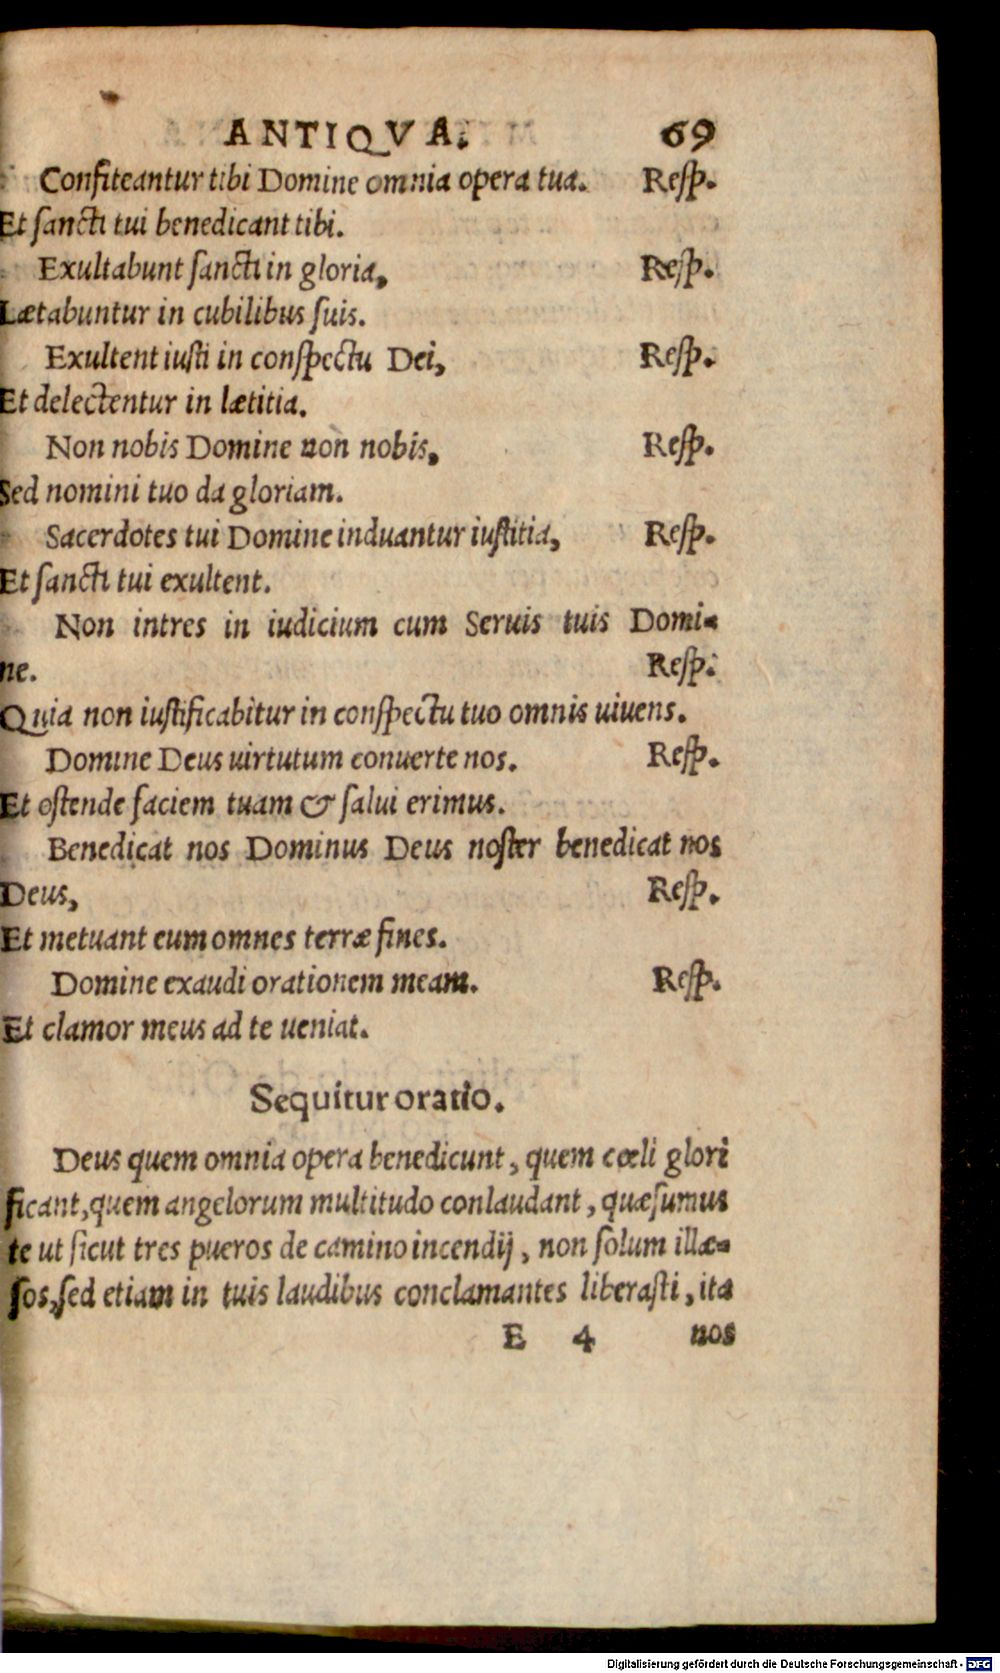 ANTIQVA. 69
Confiteantur tibi Domine omnia opera tua. Reſp.
Et ſancti tui benedicant tibi.
Exultabunt ſancti in gloria, Reſp.
Lætabuntur in cubilibus ſuis.
Exultent iuſti in conſpectu Dei, Reſp.
Et delectentur in lætitia.
Non nobis Domine non nobis, Reſp.
Sed nomini tuo da gloriam.
Sacerdotes tui Domine induantur iuſtitia, Reſp.
Et ſancti tui exultent.
Non intres in iudicium cum Seruis tuis Domi-
ne. Reſp.
Quia non iuſtificabitur in conſpectu tuo omnis uiuens.
Domine Deus uirtutum conuerte nos. Reſp.
Et oſtende faciem tuam & ſalui erimus.
Benedicat nos Dominus Deus noſter benedicat nos
Deus, Reſp.
Et metuant eum omnes terræ fines.
Domine exaudi orationem meam. Reſp.
Et clamor meus ad te ueniat.
Sequitur oratio.
Deus quem omnia opera benedicunt, quem cœli glori
ficant, quem angelorum multitudo conlaudant, quæſumus
te ut ſicut tres pueros de camino incendij, non ſolum illæ-
ſos, ſed etiam in tuis laudibus conclamantes liberaſti, ita
E 4 nos
Digitalisierung gefördert durch die Deutsche Forschungsgemeinschaft - DFG